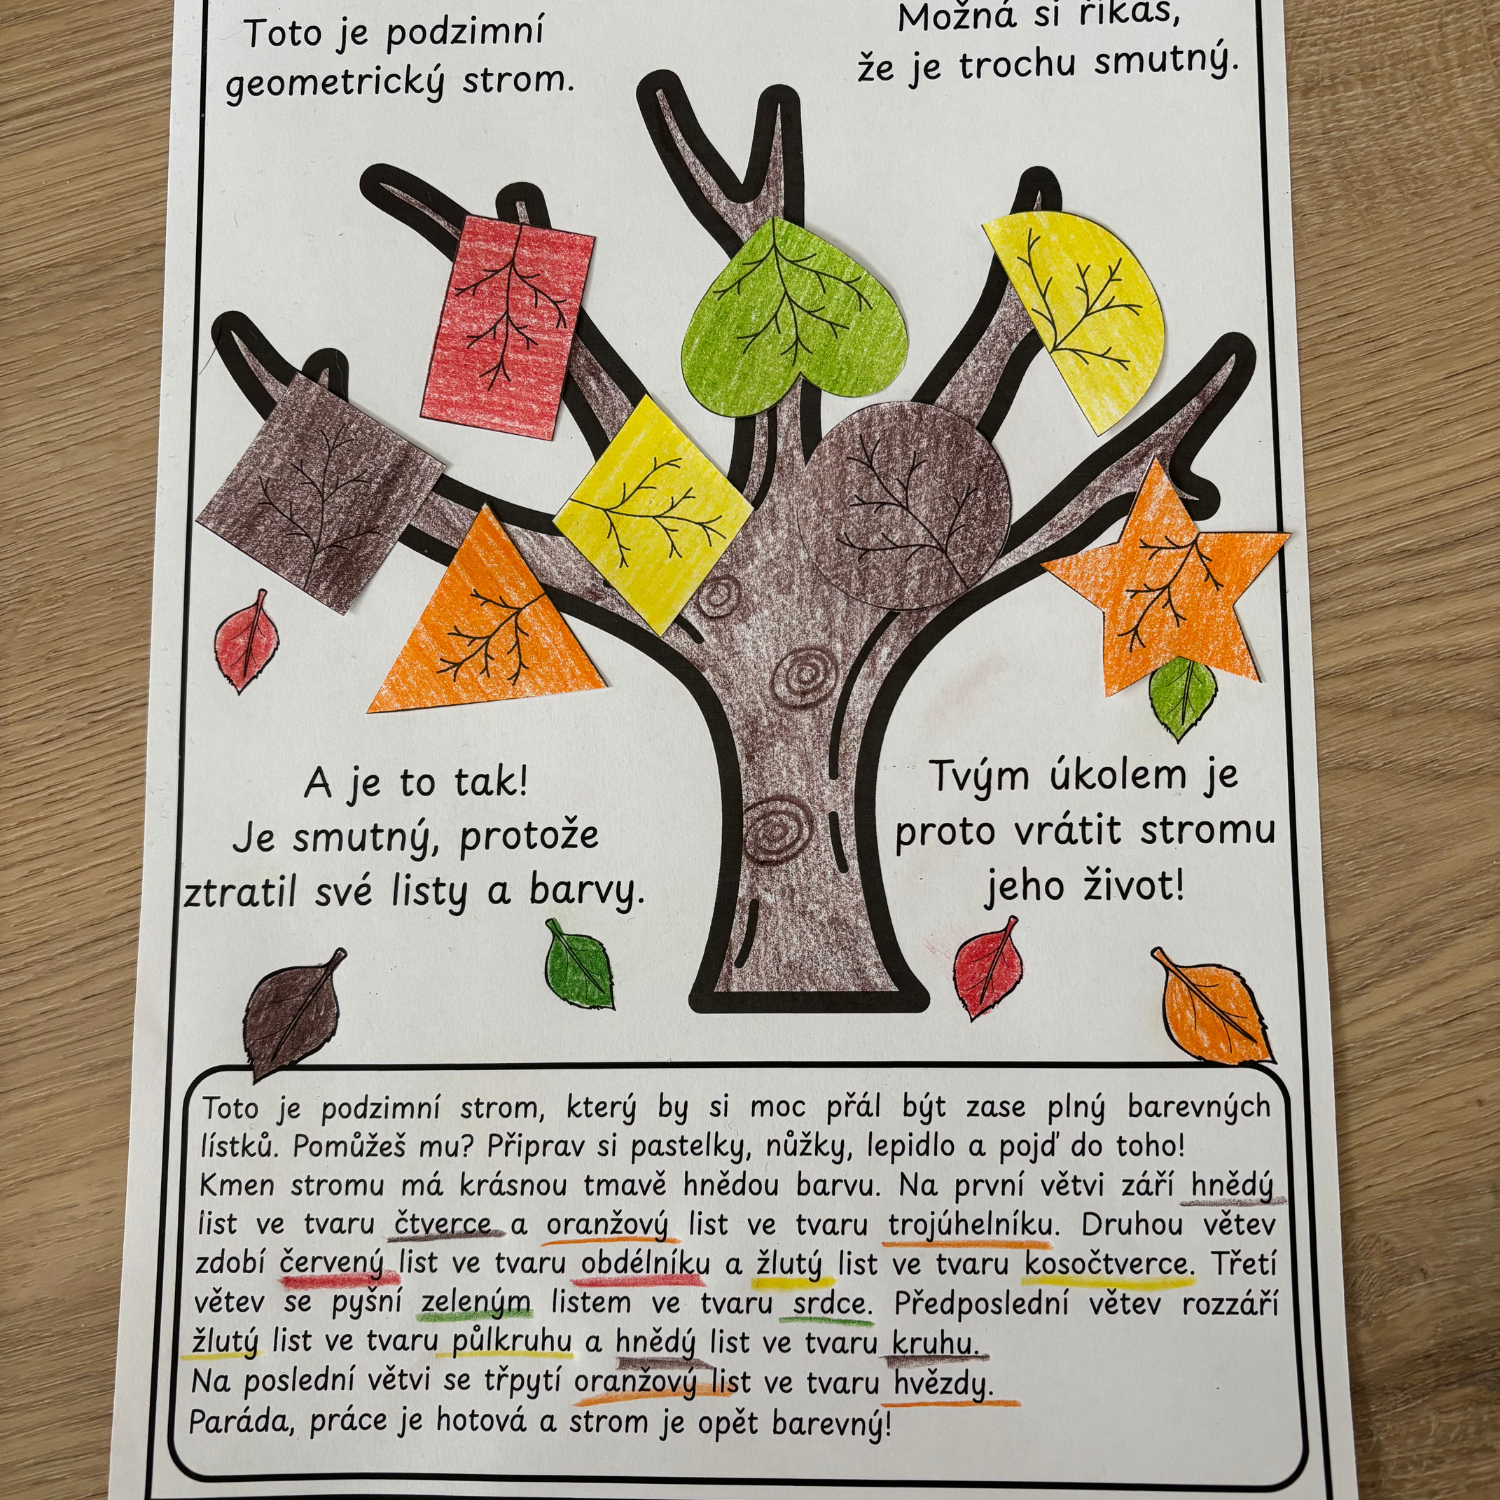 Toto je podzimní
geometrický strom.
Možná si říkáš,
že je trochu smutný.
A je to tak!
Je smutný, protože
ztratil své listy a barvy.
Tvým úkolem je
proto vrátit stromu
jeho život!
Toto je podzimní strom, který by si moc přál být zase plný barevných
lístků. Pomůžeš mu? Připrav si pastelky, nůžky, lepidlo a pojď do toho!
Kmen stromu má krásnou tmavě hnědou barvu. Na první větvi září hnědý
list ve tvaru čtverce a oranžový list ve tvaru trojúhelníku. Druhou větev
zdobí červený list ve tvaru obdélníku a žlutý list ve tvaru kosočtverce. Třetí
větev se pyšní zeleným listem ve tvaru srdce. Předposlední větev rozzáří
žlutý list ve tvaru půlkruhu a hnědý list ve tvaru kruhu.
Na poslední větvi se třpytí oranžový list ve tvaru hvězdy.
Paráda, práce je hotová a strom je opět barevný!